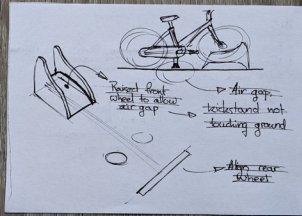 Raised front
wheel to allow
air gap
Air gap.
kickstand not
touching ground
rear
wheel